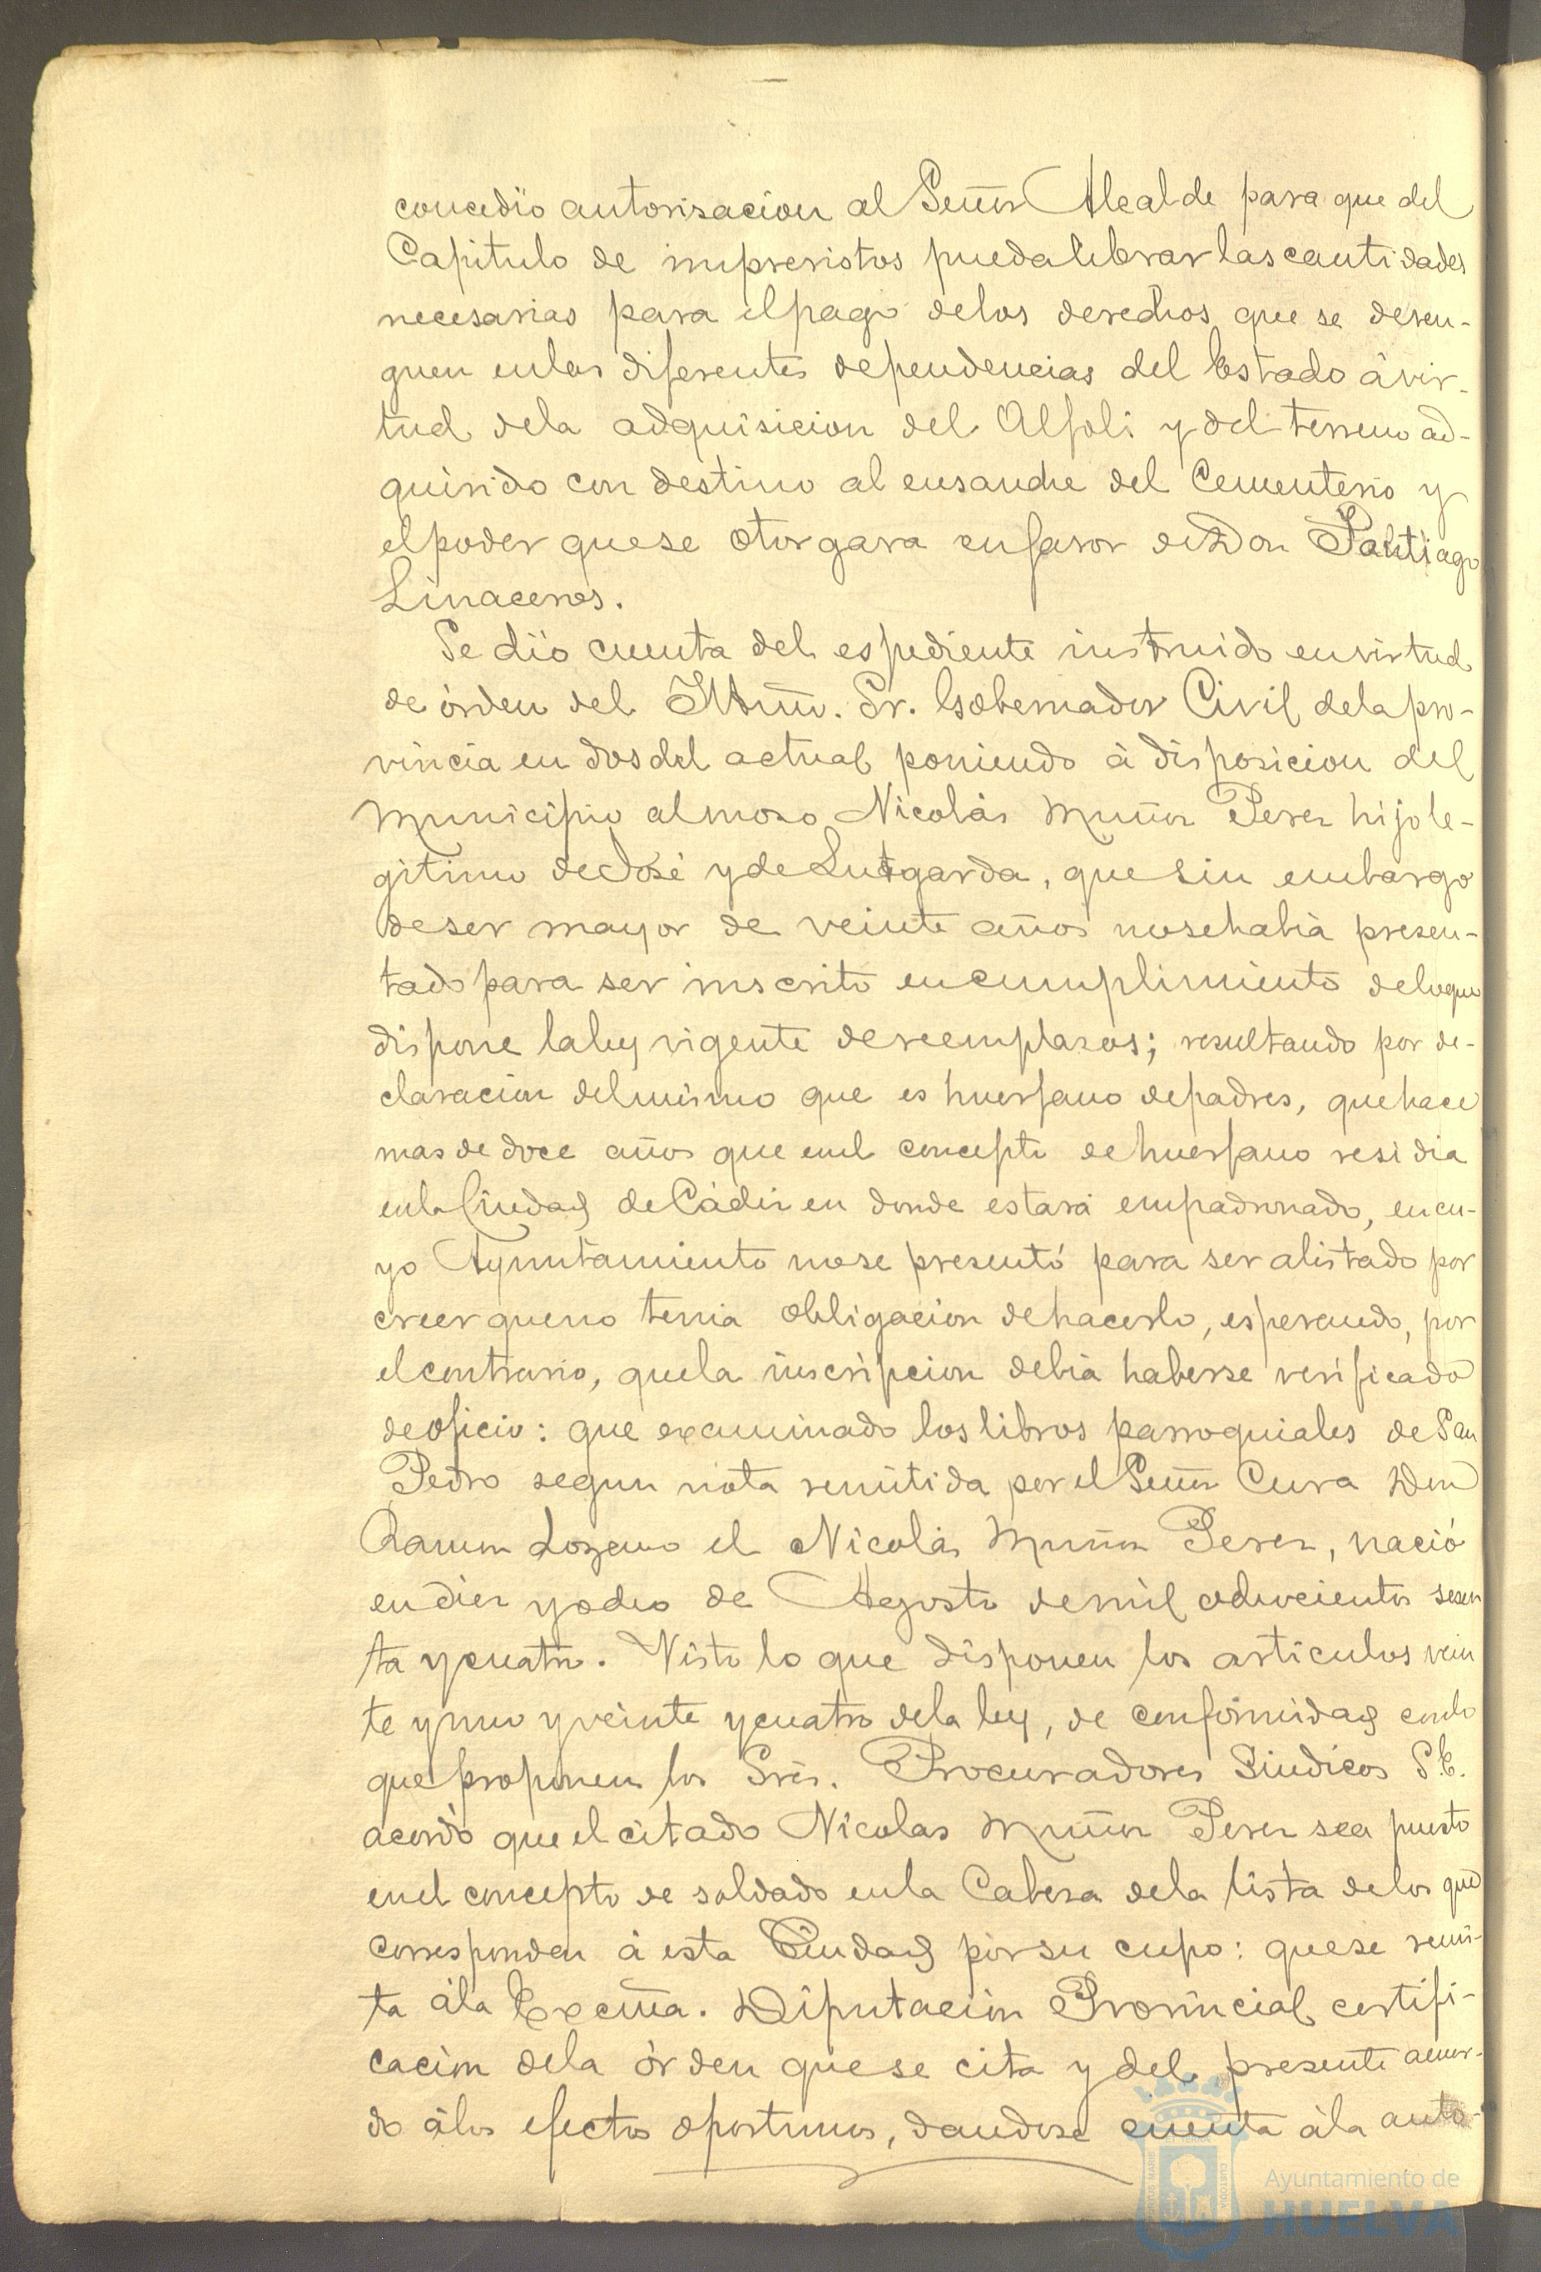 concedio autorisacion al Señor Alcalde para que del
Capitulo de imprevistos pueda librar las cantidades
necesarias para el pago de los derechos que se deven-
guen en las diferentes dependencias del Estado á vir-
tud de la adquisicion del Alfoli y del terreno ad-
quirido con destino al ensanche del Cementerio y
el poder que se otorgara en favor de Don Santiago
Linaceros.
Se dió cuenta del espediente instruido en virtud
de órden del Iltmo. Sr. Gobernador Civil de la pro-
vincia en dos del actual poniendo à disposicion del
Municipio al moso Nicolás Muñoz Perez hijo le-
gitimo de José y de Lutgarda, que sin embargo
de ser mayor de veinte años no se habia presen-
tado para ser inscrito en cumplimiento de lo que
dispone la ley vigente de reemplasos; resultando por de-
claracion del mismo que es huerfano de padres, que hace
mas de doce años que en el concepto de huerfano residia
en la Ciudad de Cádiz en donde estará empadronado, en cu-
yo Ayuntamiento no se presentó para ser alistado por
creer que no tenia obligacion de hacerlo, esperando, por
el contrario, que la inscripcion debia haberse verificado
de oficio: que examinado los libros parroquiales de San
Pedro segun nota remitida por el Señor Cura Don
Ramon Lozano el Nicolás Muñoz Perez, nació
en diez y ocho de Agosto de mil ochocientos sesen
ta y cuatro. Visto lo que disponen los articulos vein
te y uno y veinte y cuatro de la ley, de conformidad con lo
que proponen los Sres. Procuradores Sindicos S.E.
acordó que el citado Nicolas Muñoz Perez sea puesto
en el concepto de soldado en la Cabeza de la lista de los que
corresponden á esta Ciudad por su cupo: que se remi-
ta á la Excma. Diputacion Provincial certifi-
cacion de la órden que se cita y del presente acuer-
do á los efectos oportunos, dandose cuenta á la auto-
Ayuntamiento de
HUELVA